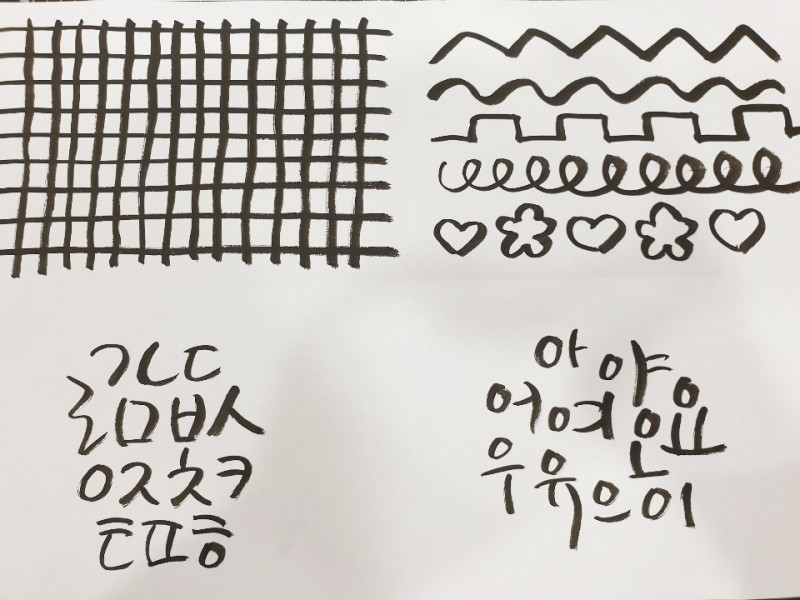 ㄱㄴㄷ
ㄹㅁㅂㅅ
ㅇㅈㅊㅋ
ㅌㅍㅎ
아야
어여오요
우유으이